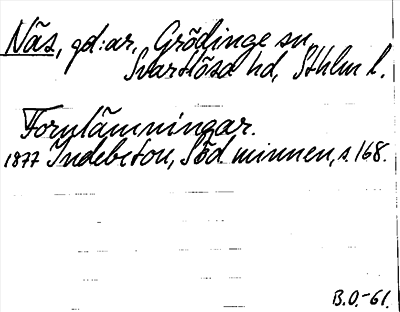 Näs, gd:ar, Grödinge sn,
Svartlösa hd, Sthlm l.
Fornlämningar.
1877 Indebetou, Söd minnen, s. 168.
B.O.-61.